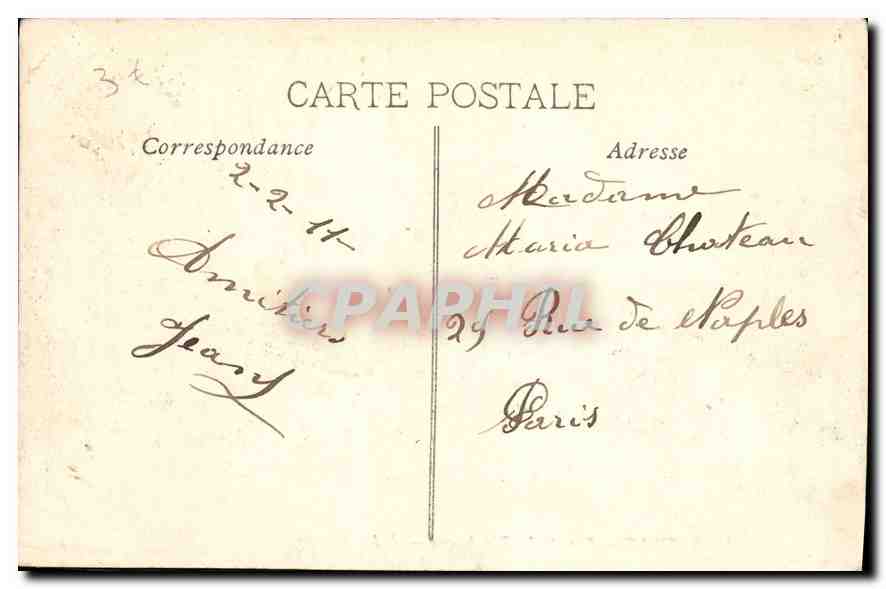 CARTE POSTALE
Correspondance
2-2-11-
Amitiés
Jean
Adresse
Madame
Maria Chateau
29 Rue de Naples
Paris
CPAPHIL